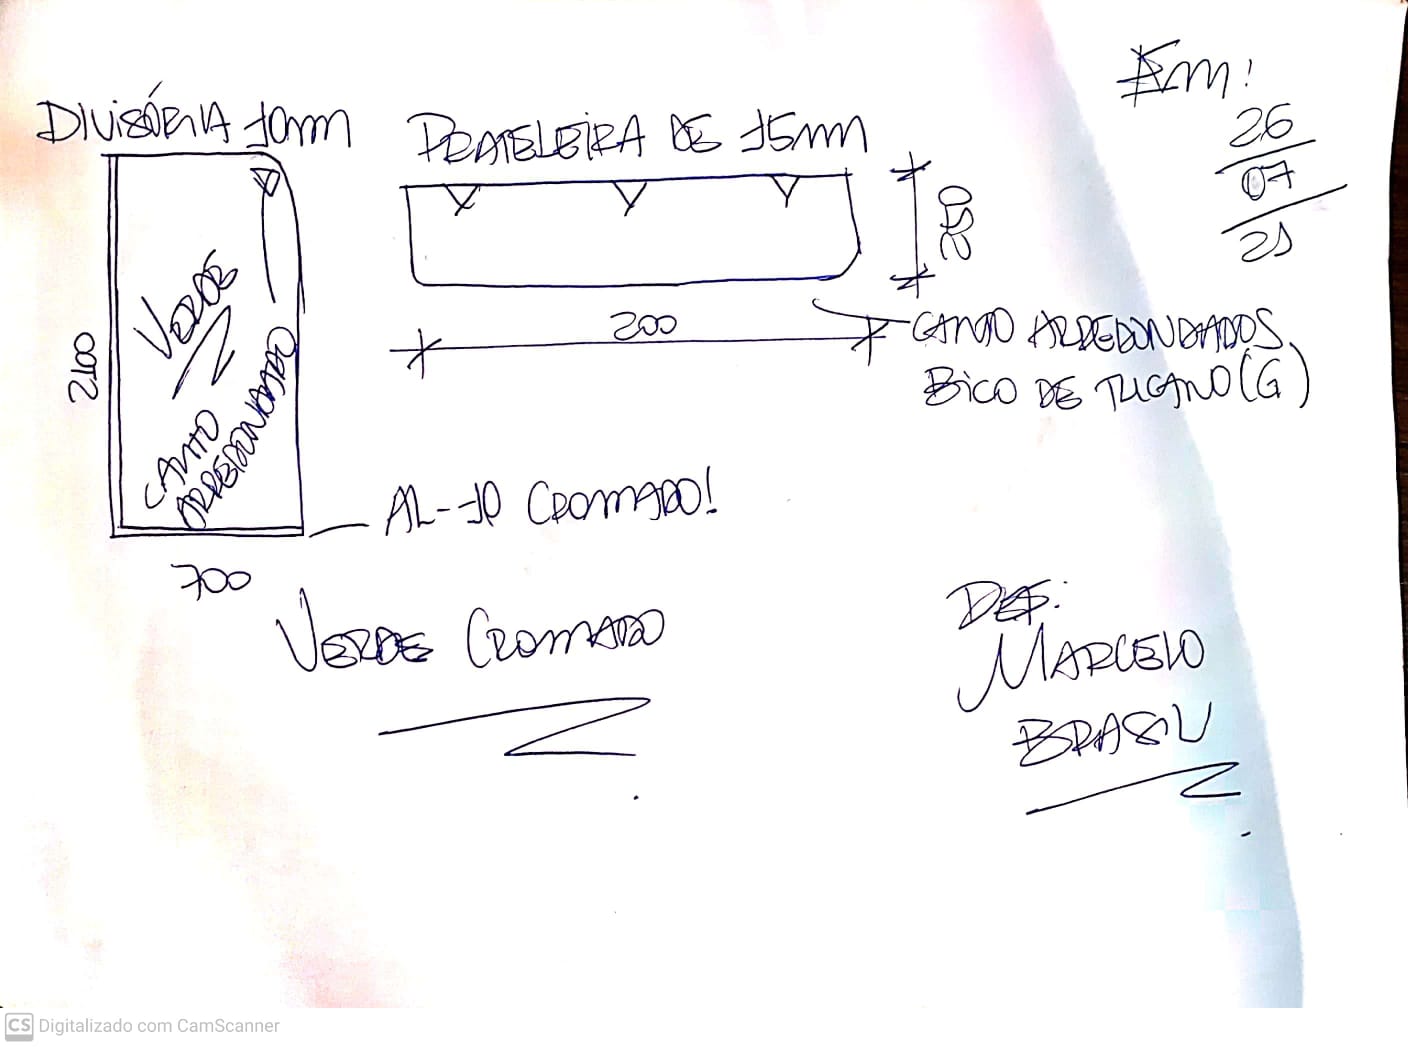 Em:
26
07
21
DIVISÓRIA 10mm
2100
VERDE
CANTO
ARREDONDADO
700
PRATELEIRA DE 15mm
250
200
CANTO ARREDONDADOS
BICO DE TUCANO (G)
AL-10 CROMADO!
VERDE CROMADO
MARCELO
BRASIL
CS Digitalizado com CamScanner